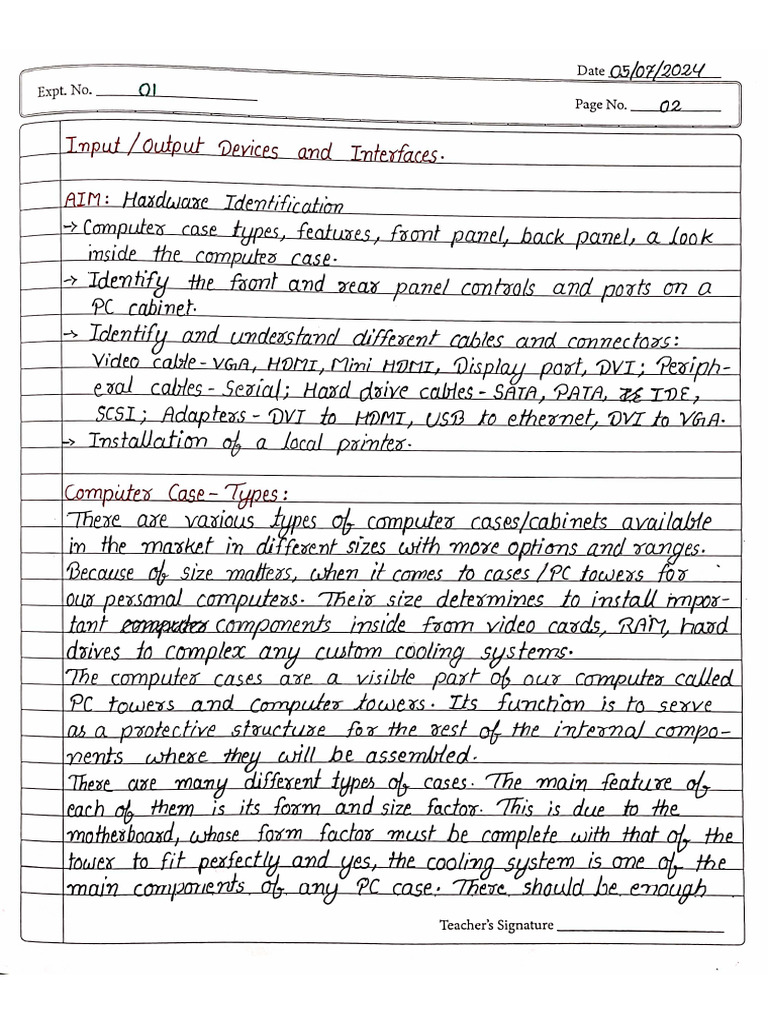 Date 05/07/2024
Expt. No. 01
Page No. 02
Input/Output Devices and Interfaces.
AIM: Hardware Identification
→ Computer case types, features, front panel, back panel, a look
inside the computer case.
→ Identify the front and rear panel controls and ports on a
PC cabinet.
→ Identify and understand different cables and connectors:
Video cable - VGA, HDMI, Mini HDMI, Display port, DVI; Periph-
eral cables - Serial; Hard drive cables - SATA, PATA, IDE,
SCSI; Adapters - DVI to HDMI, USB to ethernet, DVI to VGA.
→ Installation of a local printer.
Computer Case - Types:
There are various types of computer cases/cabinets available
in the market in different sizes with more options and ranges.
Because of size matters, when it comes to cases/PC towers for
our personal computers. Their size determines to install impor-
tant computer components inside from video cards, RAM, hard
drives to complex any custom cooling systems.
The computer cases are a visible part of our computer called
PC towers and computer towers. Its function is to serve
as a protective structure for the rest of the internal compo-
nents where they will be assembled.
There are many different types of cases. The main feature of
each of them is its form and size factor. This is due to the
motherboard, whose form factor must be complete with that of the
tower to fit perfectly and yes, the cooling system is one of the
main components of any PC case. There should be enough
Teacher's Signature